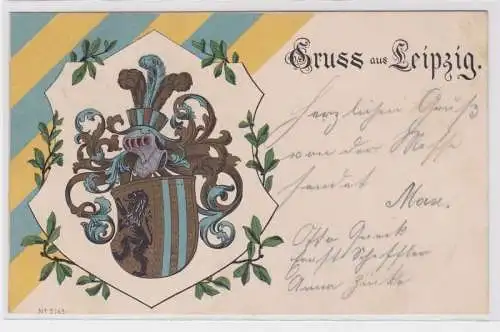 Gruss aus Leipzig.
Herzlichen Gruß
von der Messe
sendet
Max.
Otto
Anna